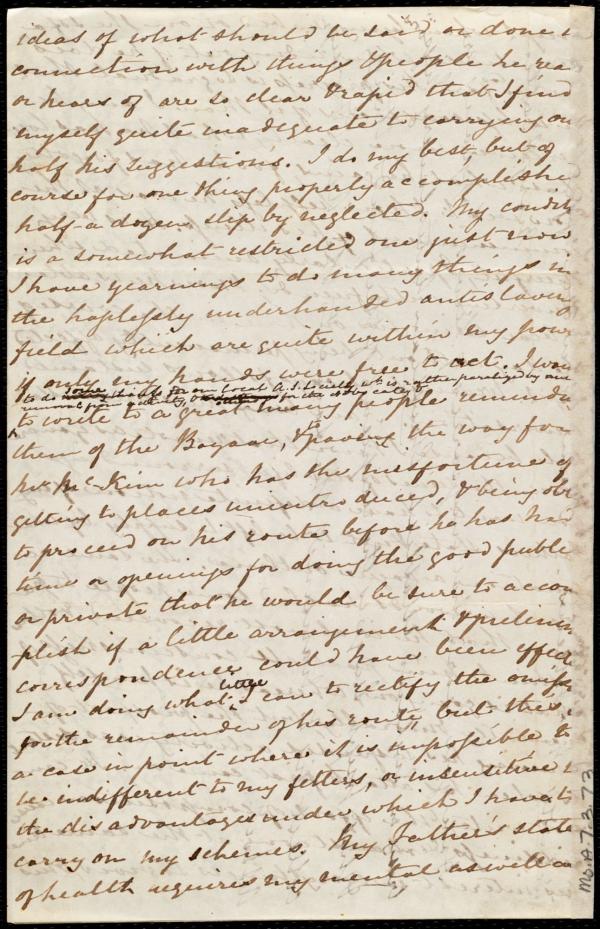 ideas of what should be said or done i
connection with things & people he rea
or hears of are so clear & rapid that I find
myself quite inadequate to carrying ou
half his suggestions. I do my best, but of
course for one thing properly accomplishe
half a dozen slip by neglected. My condit
is a somewhat restricted one just now
I have yearnings to do many things in
the haplessly underhanded antislavery
field which are quite within my powe
if only my hands were free to act. I wou
to do some for our local A.S. Society wh. is rather paralized by and
removal from activity, for the city
to write to a great many people remindi
them of the Bazaar, & paving the way for
Mr. McKim who has the misfortune of
getting to places unintroduced, & being obl
to proceed on his route before he has had
time or openings for doing the good public
or private that he would be sure to accom
plish if a little arrangement & prelimin
correspondence could have been effect
I am doing what little I can to rectify the omiss
for the remainder of his route, but this i
a case in point where it is impossible to
be indifferent to my fetters, or insensitive t
the disadvantages under which I have to
carry on my schemes. My Father's state
of health requires my mental as well a
Ms. A.7.3.73